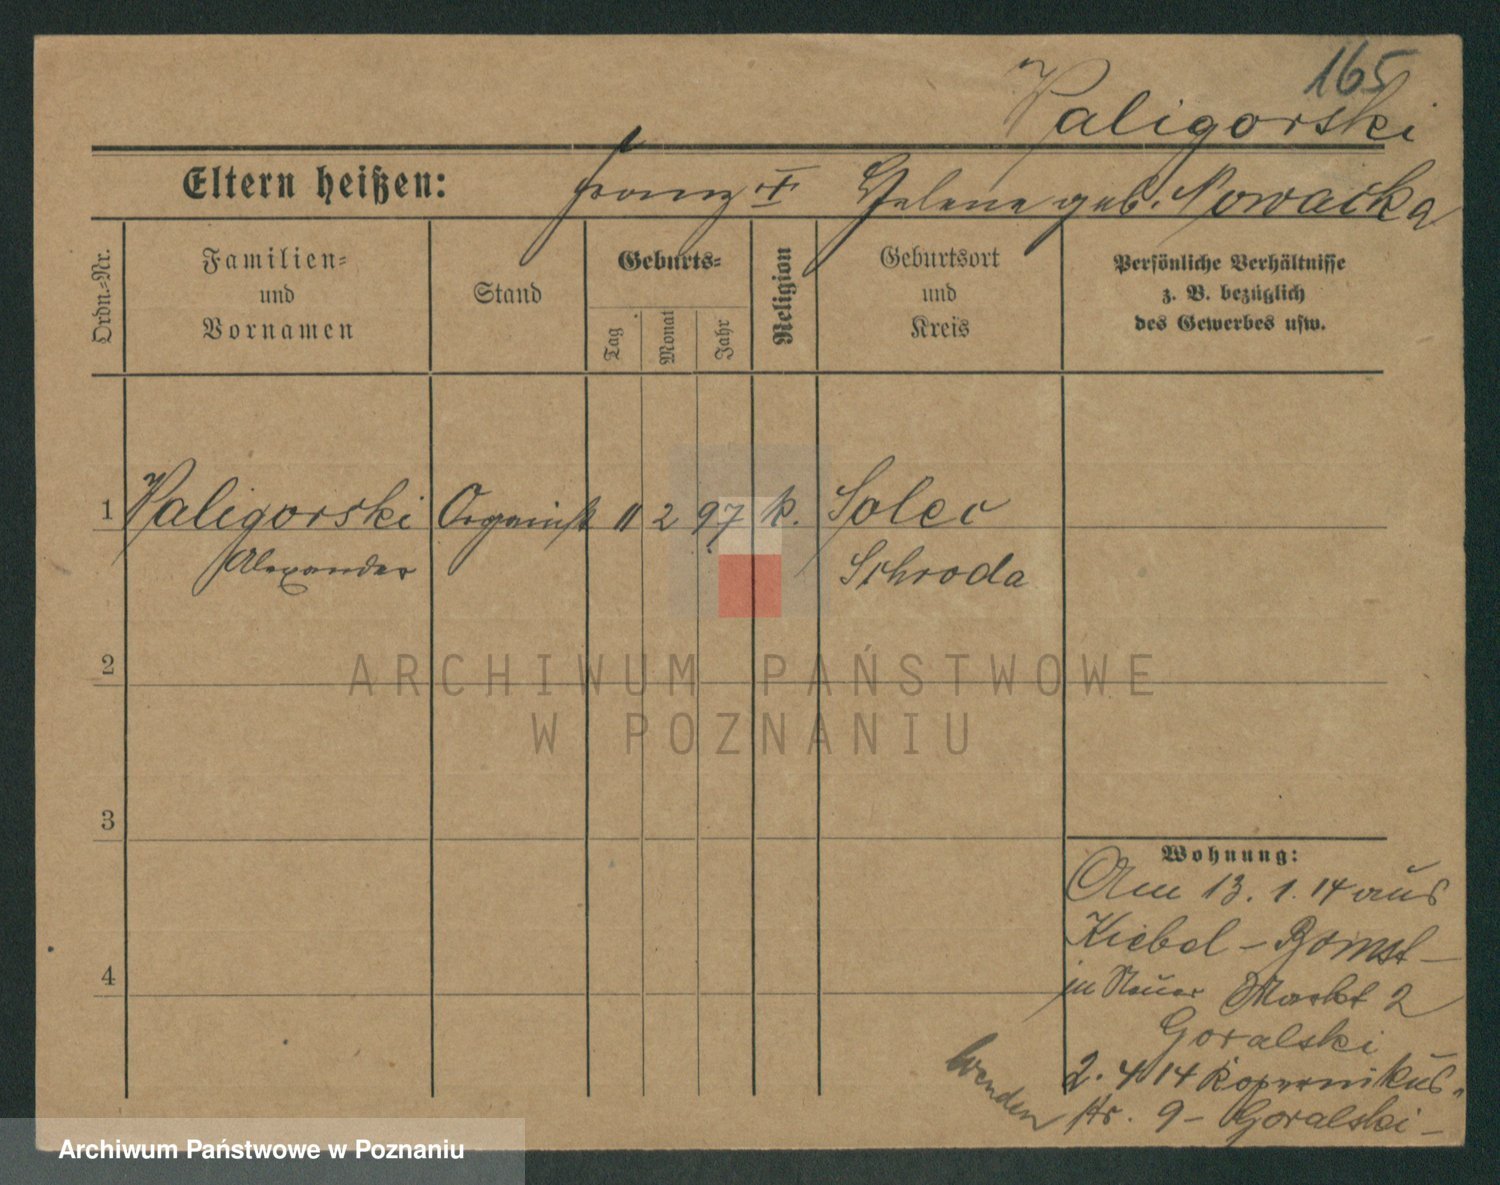 165
Paligorski
Eltern heißen: Franz † Helene geb. Nowacka
Ordn.-Nr.
Familien-
und
Vornamen
Stand
Geburts-
Tag
Monat
Jahr
Religion
Geburtsort
und
Kreis
Persönliche Verhältnisse
z. B. bezüglich
des Gewerbes usw.
1 Paligorski Organist 11 2 97 k. Solec
Alexander Schroda
2
3
4
Wohnung:
Am 13. 1. 14 aus
Kiebel - Bomst -
in Neuer Markt 2
Goralski
2. 4 14 Kopernikus-
str. 9 - Goralski -
wenden
ARCHIWUM PAŃSTWOWE
W POZNANIU
Archiwum Państwowe w Poznaniu